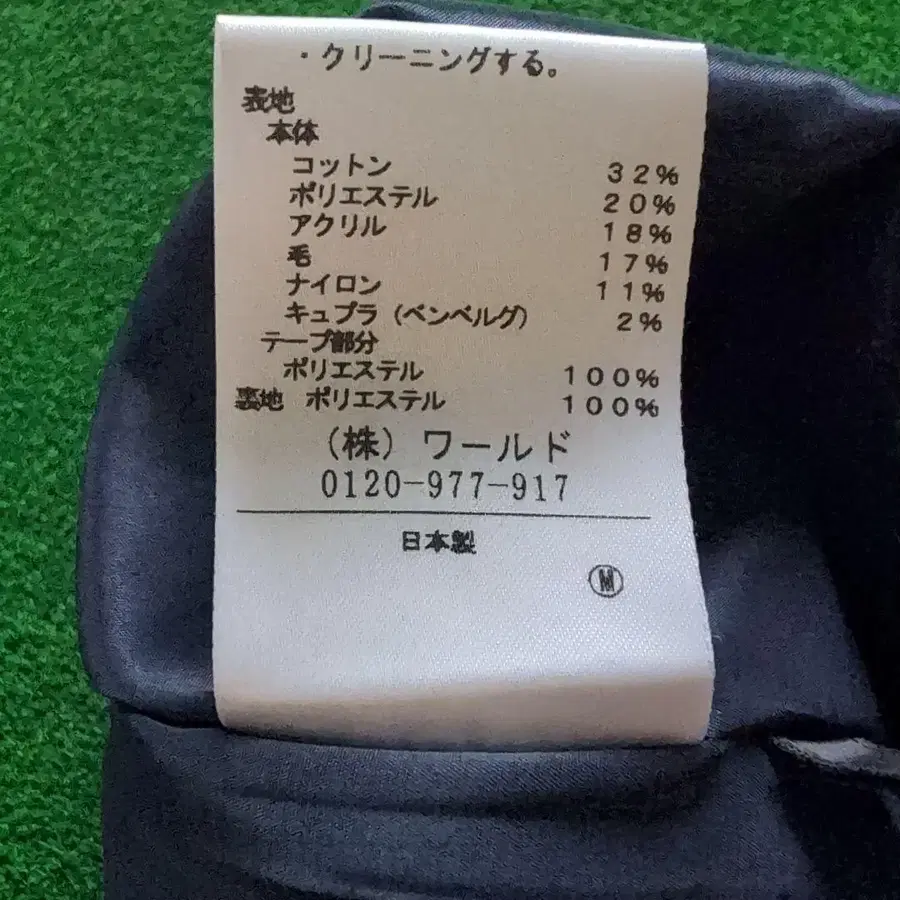 ・クリーニングする。
表地
本体
コットン 32%
ポリエステル 20%
アクリル 18%
毛 17%
ナイロン 11%
キュプラ（ベンベルグ） 2%
テープ部分
ポリエステル 100%
裏地 ポリエステル 100%
（株）ワールド
0120-977-917
日本製
Ⓜ